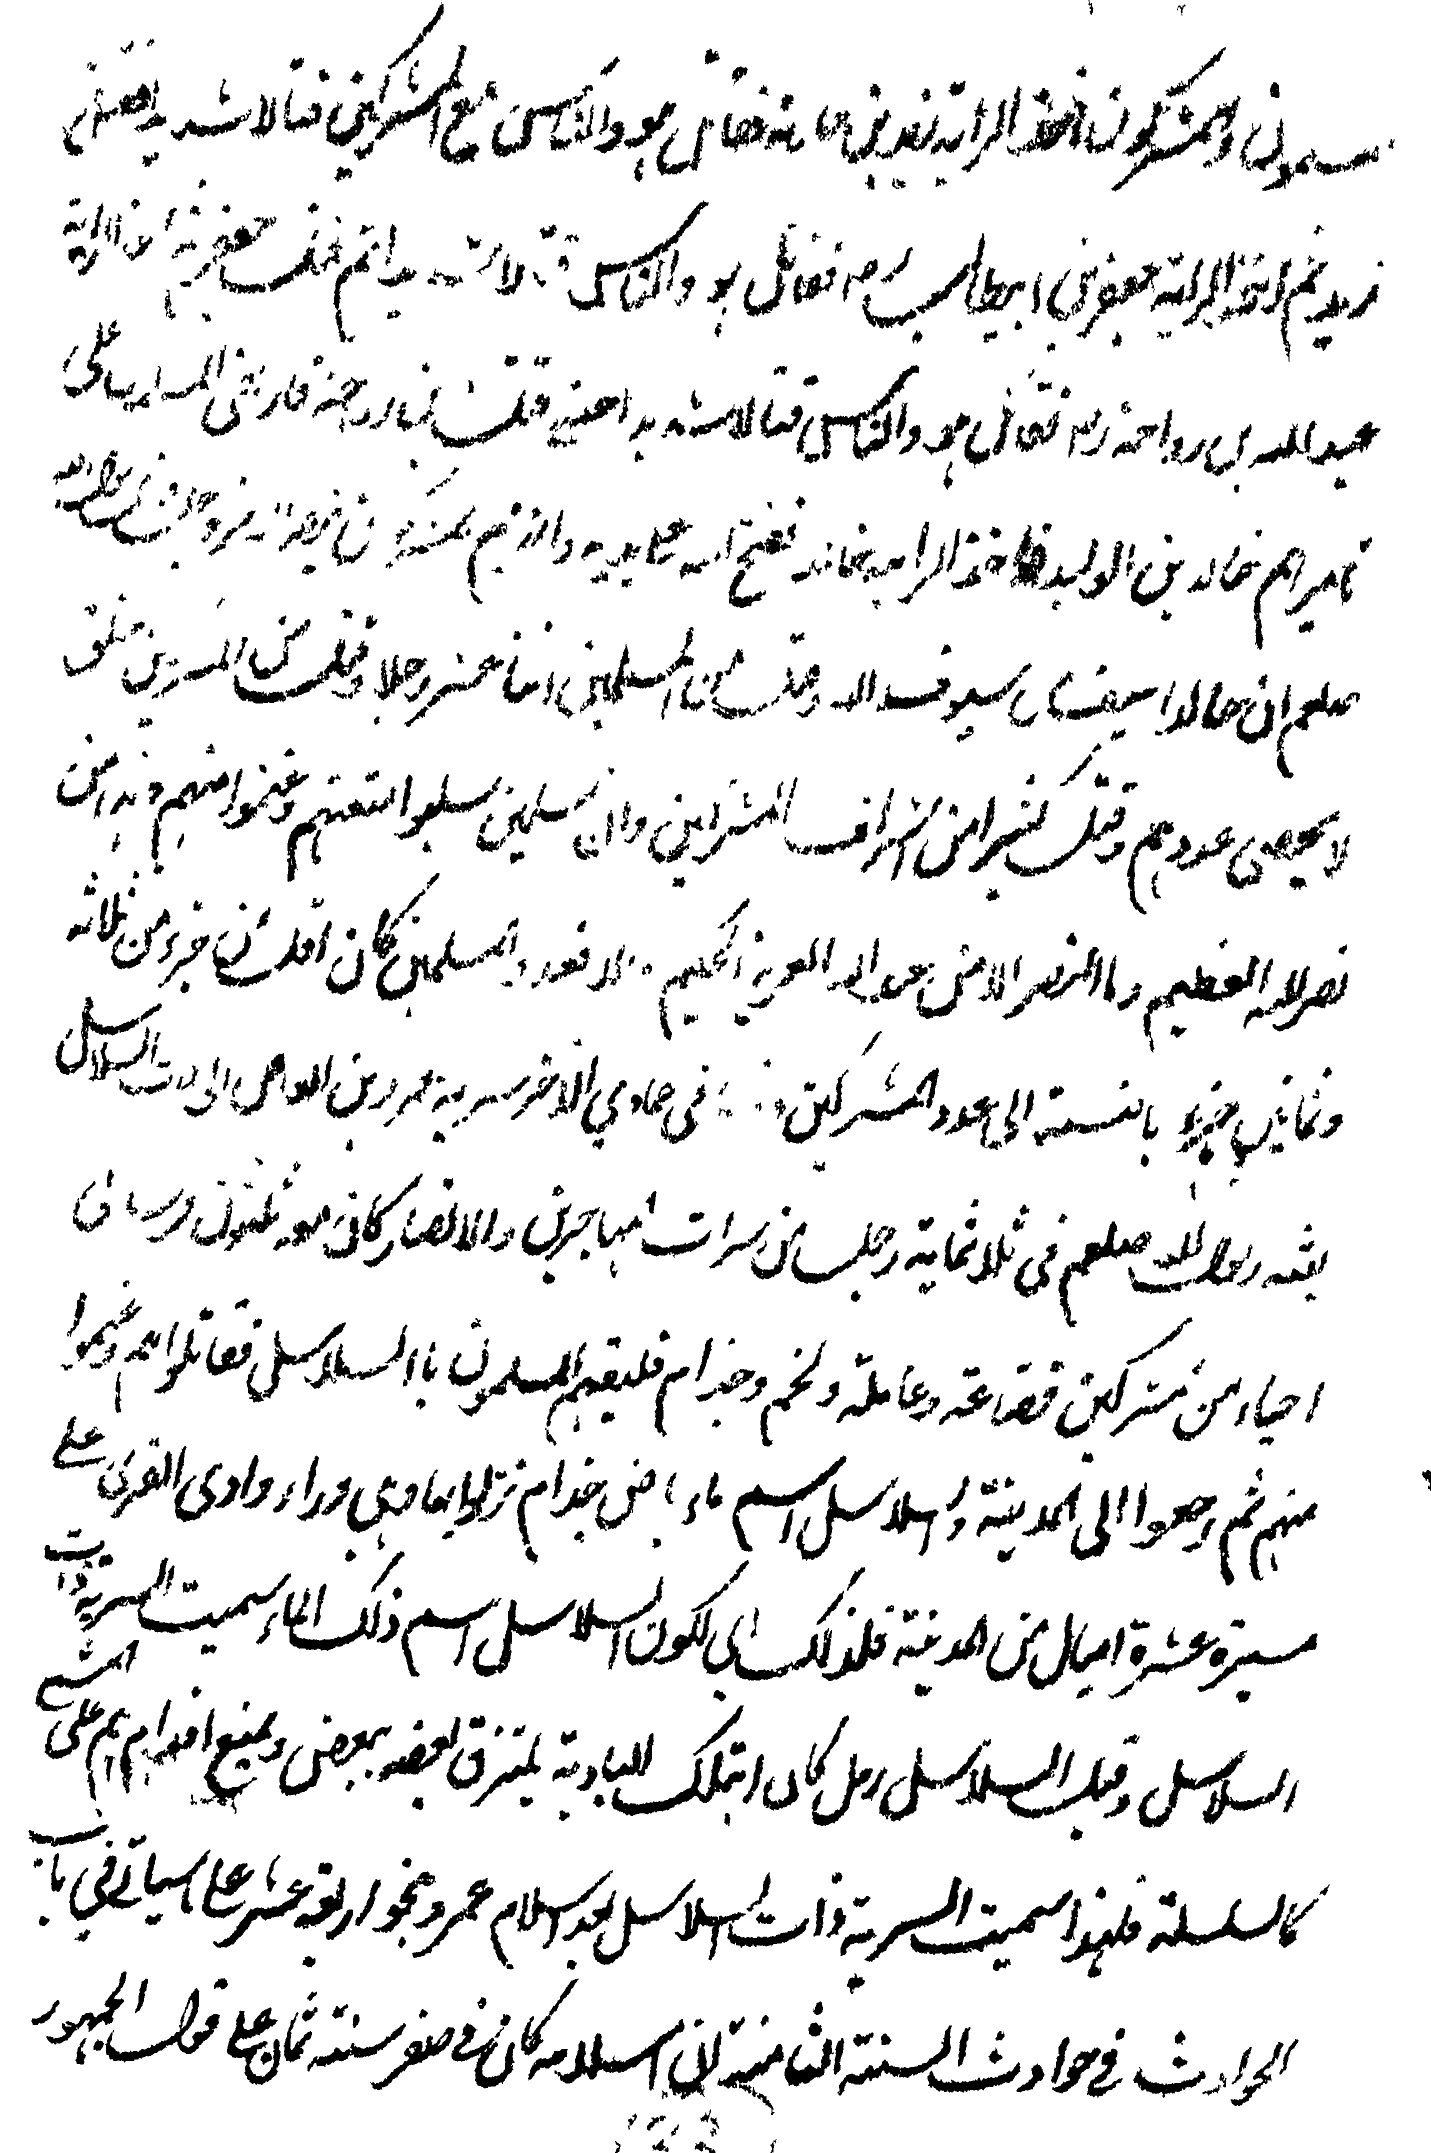 المسلمون والمشركون اخذ الراية زيد بن حارثة فقاتل هو والناس مع المشركين قتالا شديدا فقتل
زيد ثم اخذ الراية جعفر بن ابيطالب رضه فقاتل هو والناس قتالا شديدا ثم قتل جعفر ثم اخذ الراية
عبدالله بن رواحة رضه فقاتل هو والناس قتالا شديدا حتى قتل ابن رواحة فارتضى المسلمون على
تاميرهم خالد بن الوليد فاخذ الراية خالد ففتح الله على يديه وانهزم المشركون
صلعم ان خالدا سيف من سيوف الله وقتل من المسلمين اثنا عشر رجلا وقتل من المشركين خلق
لا يحصى عددهم وقتل كثير من اشراف المشركين وان المسلمين سلبوا امتعتهم وغنموا منهم وهذا من
نصر الله العظيم وما النصر الا من عند الله العزيز الحكيم والا فعدد المسلمين كان اقل من جزء من ثلاثة
وثمانين جزء بالنسبة الى عدد المشركين وفيها في جمادي الاخر سرية عمرو بن العاص الى ذات السلاسل
بعثه رسول الله صلعم في ثلاثمائة رجل من سراة المهاجرين والانصار وكان معه ثلثون فرسا في
احياء من مشركين قضاعة وعاملة ولخم وجذام فلقيهم المسلمون باالسلاسل فقاتلواهم وغنموا
منهم ثم رجعوا الى المدينة والسلاسل اسم ماء بارض جذام نزلوا بها وهي وراء وادى القرى على
مسيرة عشرة اميال من المدينة فلذلك اي لكون السلاسل اسم ذلك الماء سميت السرية ذات
السلاسل وقيل السلاسل رمل كان بتلك البادية يلتزق بعضه ببعض ويمنع اقدامهم على المشي
كالسلسلة فلهذا سميت السرية ذات السلاسل بعد اسلام عمرو بنحو اربعة عشر على ما سياتي في باب
الحوادث في حوادث السنة الثامنة لان اسلامه كان في صفر سنة ثمان على قول الجمهور